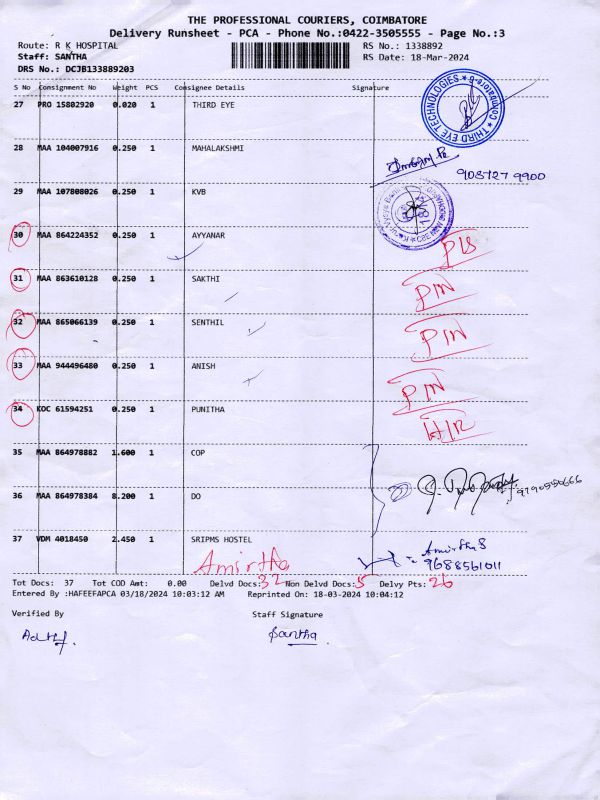 THE PROFESSIONAL COURIERS, COIMBATORE
Delivery Runsheet - PCA - Phone No.:0422-3505555 - Page No.:3
Route: R K HOSPITAL RS No.: 1338892
Staff: SANTHA RS Date: 18-Mar-2024
DRS No.: DCJB133889203
S No Consignment No Weight PCS Consignee Details Signature
27 PRO 15802920 0.020 1 THIRD EYE
THIRD EYE TECHNOLOGIES * Coimbatore-6 *
28 MAA 104007916 0.250 1 MAHALAKSHMI
908727 9900
29 MAA 107808026 0.250 1 KVB
30 MAA 864224352 0.250 1 AYYANAR
31 MAA 863610128 0.250 1 SAKTHI PIN
32 MAA 865066139 0.250 1 SENTHIL PIN
33 MAA 944496480 0.250 1 ANISH PIN
34 KOC 61594251 0.250 1 PUNITHA
35 MAA 864978882 1.600 1 COP
36 MAA 864978384 8.200 1 DO
37 VDM 4018450 2.450 1 SRIPMS HOSTEL
Amirtha Amirtha S
9688561011
Tot Docs: 37 Tot COD Amt: 0.00 Delvd Docs: 32 Non Delvd Docs: 5 Delvy Pts: 26
Entered By :HAFEEFAPCA 03/18/2024 10:03:12 AM Reprinted On: 18-03-2024 10:04:12
Verified By Staff Signature
Santha